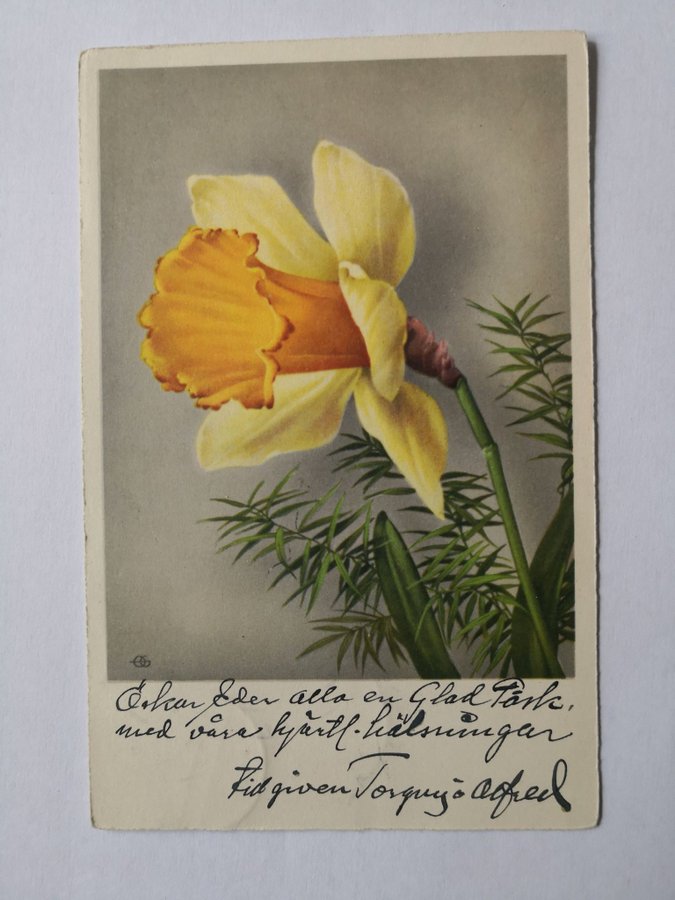 Önskar Eder alla en Glad Påsk,
med våra hjärtl. hälsningar
Alfred